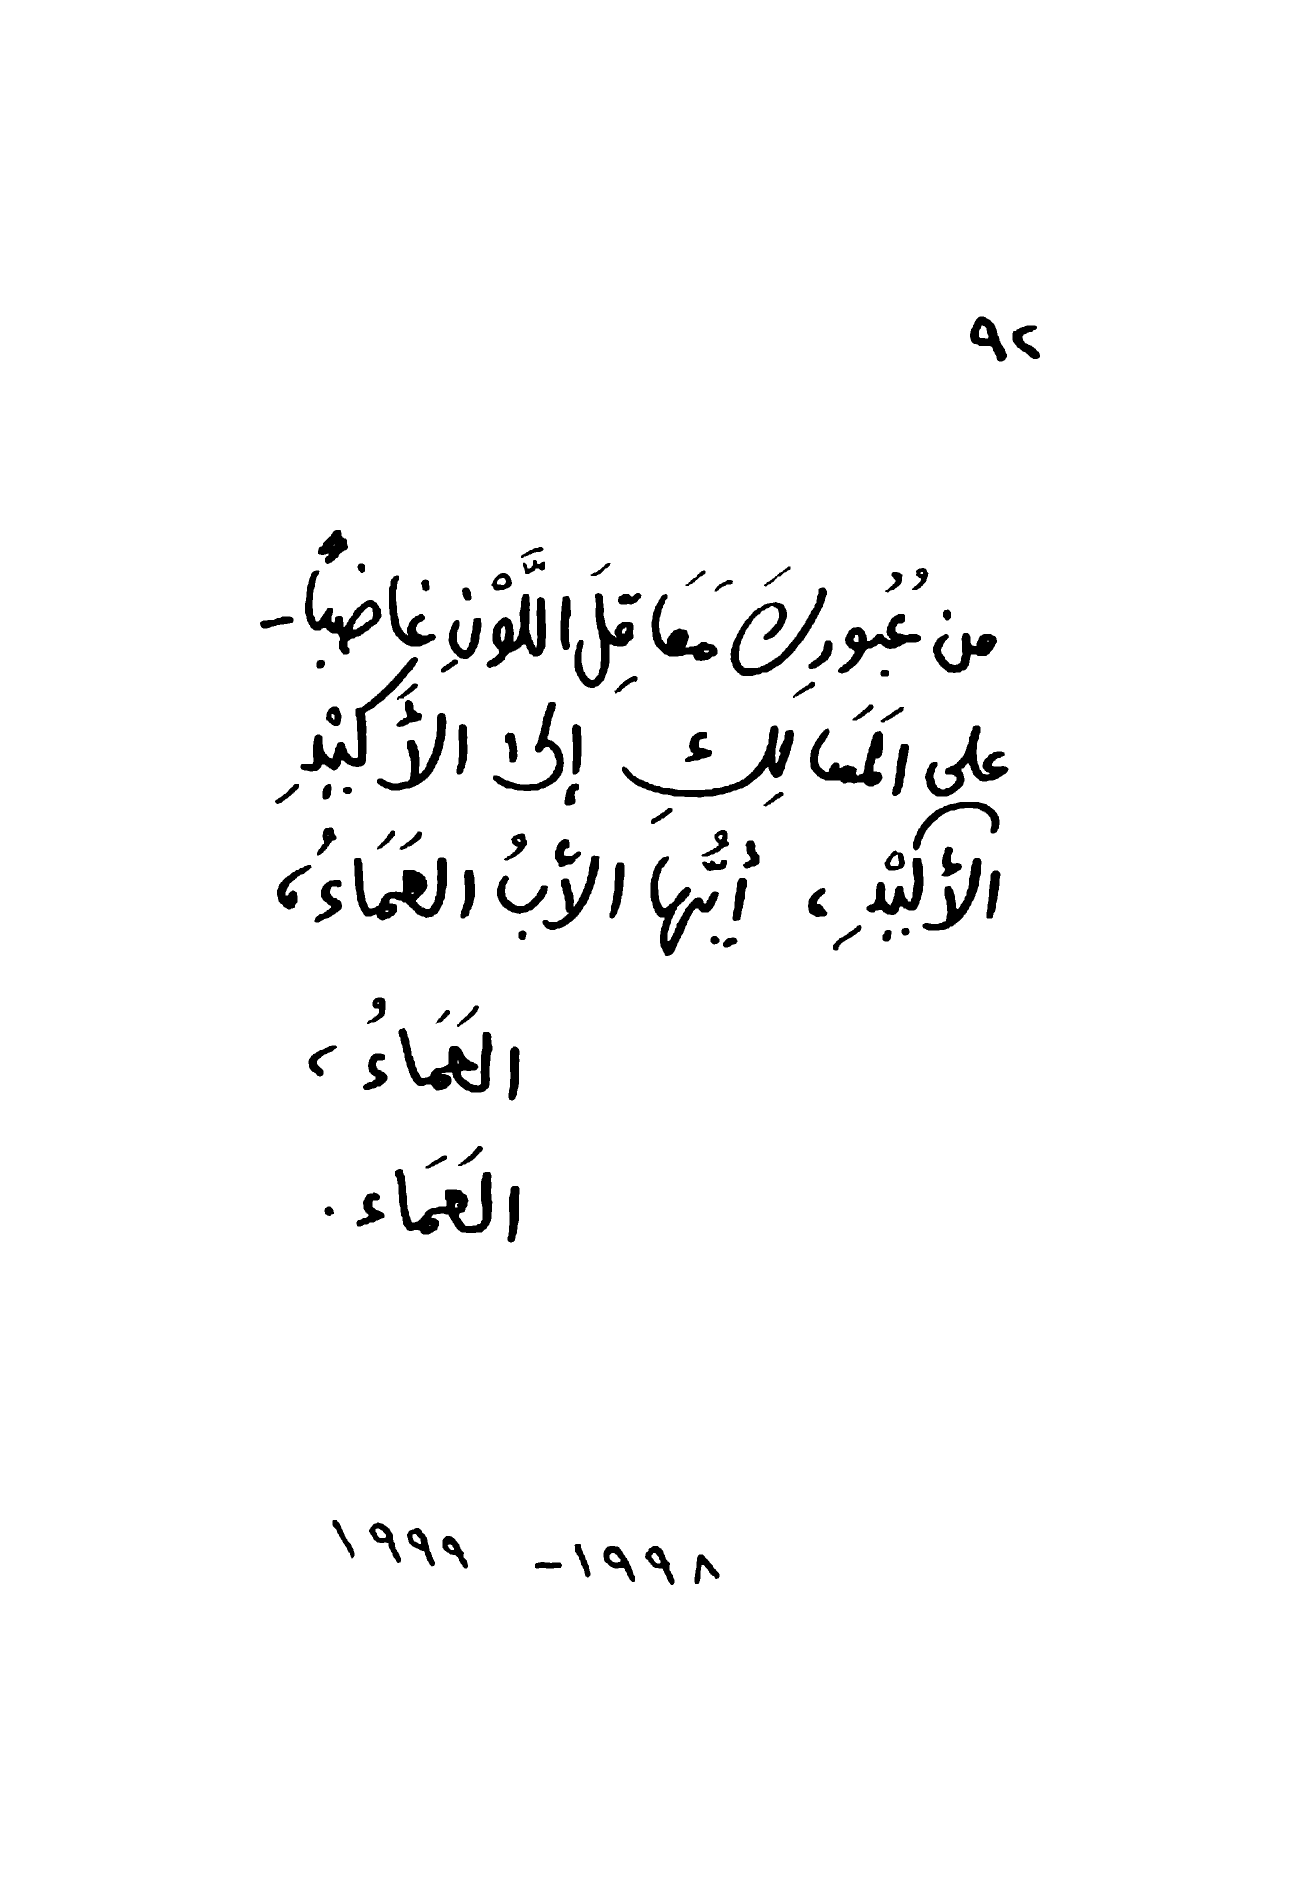 ٩٢
من عُبُورِكَ مَعَاقِلَ اللَّوْنِ غاضبًا -
على المَمَالِكِ إلى الأَكِيْدِ
الأكيْدِ، أيُّها الأبُ العَمَاءُ،
العَمَاءُ،
العَمَاء.
١٩٩٨ - ١٩٩٩